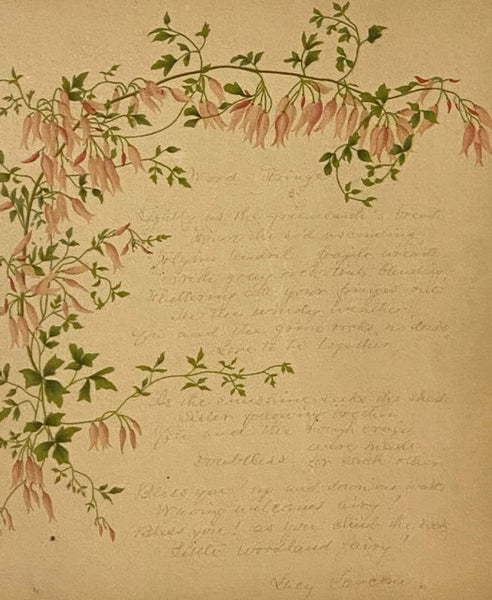 Wood-Fringe
Lightly as the green earth's breath
From the sod ascending
tendril, fragile wreath
With gray rock tints blending
Fluttering all your fringes out
In the windy weather,
You and the grim rocks, no doubt
Love to be together
As the sunshine seeks the shade
Sister following brother
You and the rough crags
were made
Doubtless for each other
Bless you! up and down our walks
Waving welcomes airy!
Bless you! as you climb the rocks
Little woodland fairy!
Lucy Larcom